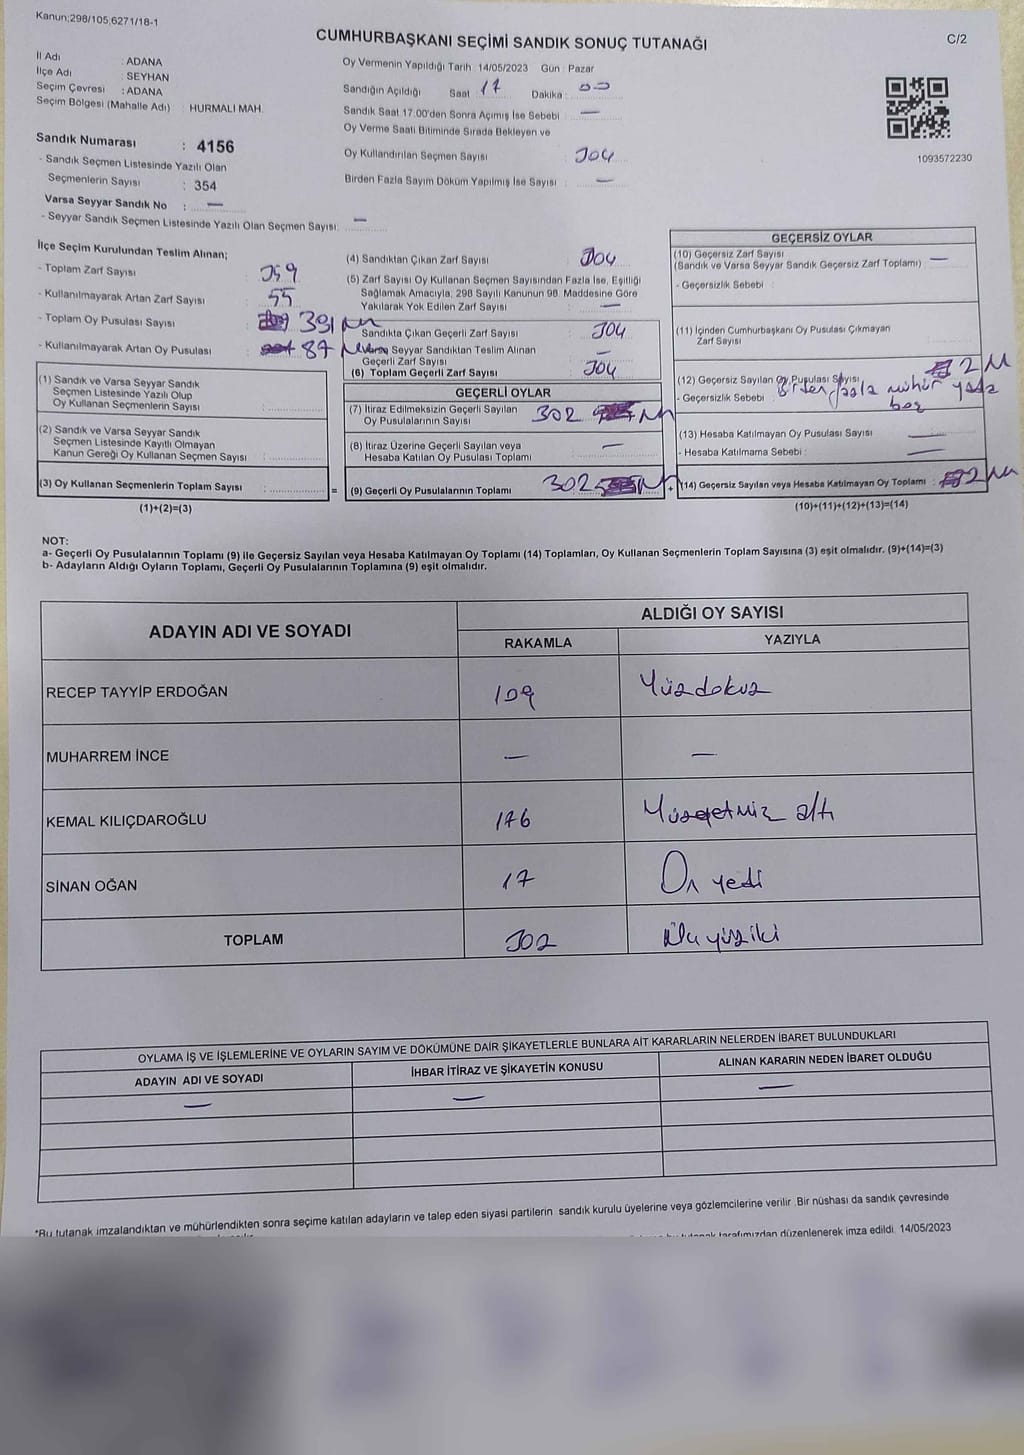 Kanun;298/105;6271/18-1
C/2
CUMHURBAŞKANI SEÇİMİ SANDIK SONUÇ TUTANAĞI
İl Adı : ADANA
İlçe Adı : SEYHAN
Seçim Çevresi : ADANA
Seçim Bölgesi (Mahalle Adı) : HURMALI MAH.
Sandık Numarası : 4156
- Sandık Seçmen Listesinde Yazılı Olan
Seçmenlerin Sayısı : 354
Varsa Seyyar Sandık No : —
- Seyyar Sandık Seçmen Listesinde Yazılı Olan Seçmen Sayısı: —
Oy Vermenin Yapıldığı Tarih :14/05/2023 Gün : Pazar
Sandığın Açıldığı Saat 17 Dakika : 00
Sandık Saat 17.00'den Sonra Açımış İse Sebebi : —
Oy Verme Saati Bitiminde Sırada Bekleyen ve
Oy Kullandırılan Seçmen Sayısı : 304
Birden Fazla Sayım Döküm Yapılmış İse Sayısı : —
1093572230
İlçe Seçim Kurulundan Teslim Alınan;
- Toplam Zarf Sayısı : 359
- Kullanılmayarak Artan Zarf Sayısı : 55
- Toplam Oy Pusulası Sayısı : 391
- Kullanılmayarak Artan Oy Pusulası : 87
(1) Sandık ve Varsa Seyyar Sandık
Seçmen Listesinde Yazılı Olup
Oy Kullanan Seçmenlerin Sayısı :
(2) Sandık ve Varsa Seyyar Sandık
Seçmen Listesinde Kayıtlı Olmayan
Kanun Gereği Oy Kullanan Seçmen Sayısı :
(3) Oy Kullanan Seçmenlerin Toplam Sayısı : =
(1)+(2)=(3)
(4) Sandıktan Çıkan Zarf Sayısı : 304
(5) Zarf Sayısı Oy Kullanan Seçmen Sayısından Fazla İse, Eşitliği
Sağlamak Amacıyla, 298 Sayılı Kanunun 98. Maddesine Göre
Yakılarak Yok Edilen Zarf Sayısı : —
Sandıkta Çıkan Geçerli Zarf Sayısı : 304
Varsa Seyyar Sandıktan Teslim Alınan
Geçerli Zarf Sayısı : —
(6) Toplam Geçerli Zarf Sayısı : 304
GEÇERLİ OYLAR
(7) İtiraz Edilmeksizin Geçerli Sayılan
Oy Pusulalarının Sayısı : 302
(8) İtiraz Üzerine Geçerli Sayılan veya
Hesaba Katılan Oy Pusulası Toplamı : —
(9) Geçerli Oy Pusulalarının Toplamı : 302 +
GEÇERSİZ OYLAR
(10) Geçersiz Zarf Sayısı
(Sandık ve Varsa Seyyar Sandık Geçersiz Zarf Toplamı) : —
- Geçersizlik Sebebi :
(11) İçinden Cumhurbaşkanı Oy Pusulası Çıkmayan
Zarf Sayısı :
(12) Geçersiz Sayılan Oy Pusulası Sayısı : 2
- Geçersizlik Sebebi : Birden fazla mühür yada
boş
(13) Hesaba Katılmayan Oy Pusulası Sayısı : —
- Hesaba Katılmama Sebebi : —
(14) Geçersiz Sayılan veya Hesaba Katılmayan Oy Toplamı : 2
(10)+(11)+(12)+(13)=(14)
NOT:
a- Geçerli Oy Pusulalarının Toplamı (9) ile Geçersiz Sayılan veya Hesaba Katılmayan Oy Toplamı (14) Toplamları, Oy Kullanan Seçmenlerin Toplam Sayısına (3) eşit olmalıdır. (9)+(14)=(3)
b- Adayların Aldığı Oyların Toplamı, Geçerli Oy Pusulalarının Toplamına (9) eşit olmalıdır.
ADAYIN ADI VE SOYADI
ALDIĞI OY SAYISI
RAKAMLA YAZIYLA
RECEP TAYYİP ERDOĞAN 109 Yüzdokuz
MUHARREM İNCE — —
KEMAL KILIÇDAROĞLU 176 Yüzyetmiz altı
SİNAN OĞAN 17 On yedi
TOPLAM 302 üçyüziki
OYLAMA İŞ VE İŞLEMLERİNE VE OYLARIN SAYIM VE DÖKÜMÜNE DAİR ŞİKAYETLERLE BUNLARA AİT KARARLARIN NELERDEN İBARET BULUNDUKLARI
ADAYIN ADI VE SOYADI İHBAR İTİRAZ VE ŞİKAYETİN KONUSU ALINAN KARARIN NEDEN İBARET OLDUĞU
— — —
*Bu tutanak imzalandıktan ve mühürlendikten sonra seçime katılan adayların ve talep eden siyasi partilerin sandık kurulu üyelerine veya gözlemcilerine verilir. Bir nüshası da sandık çevresinde
tutanak tarafımızdan düzenlenerek imza edildi. 14/05/2023